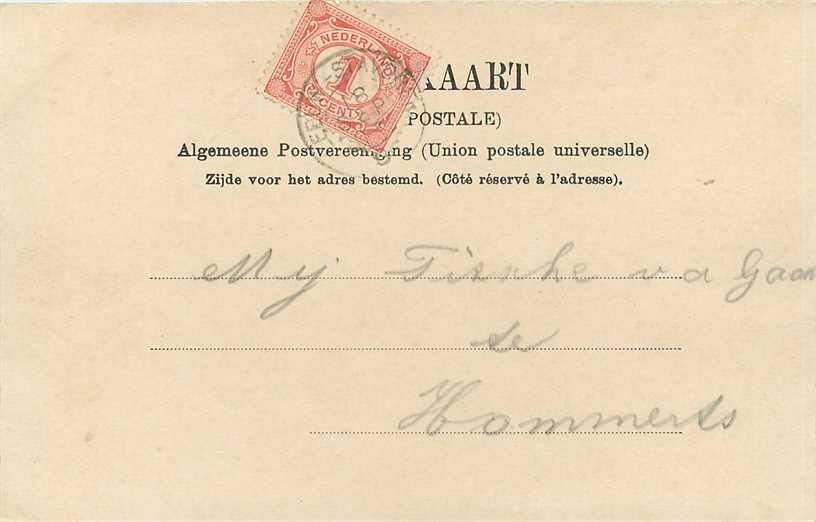 NEDERLAND
1
CENT
KAART
POSTALE)
Algemeene Postvereeniging (Union postale universelle)
Zijde voor het adres bestemd. (Côté réservé à l'adresse).
Mej Titsche v d Gaas
te
Hommerts